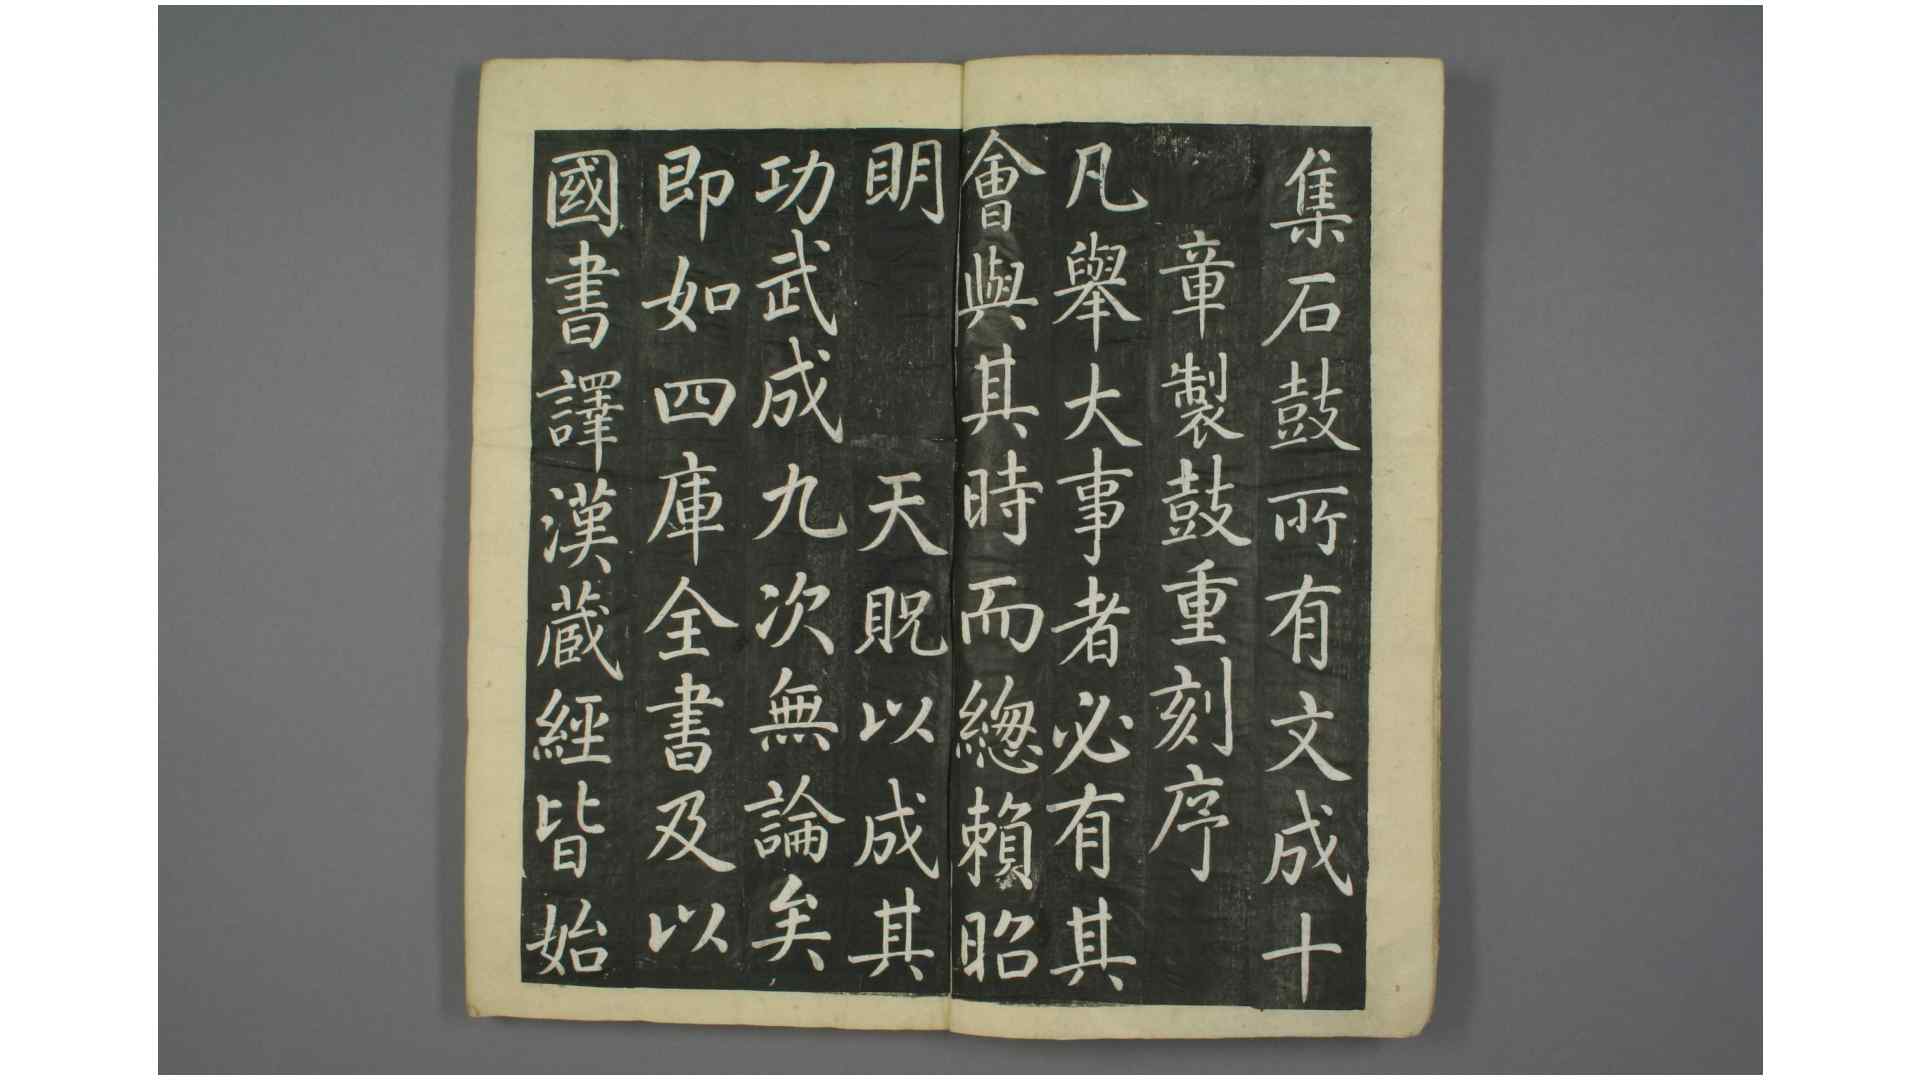 集石鼓所有文成十
章製鼓重刻序
凡舉大事者必有其
會與其時而緫賴昭
明 天貺以成其
功武成九次無論矣
即如四庫全書及以
國書譯漢蔵經皆始